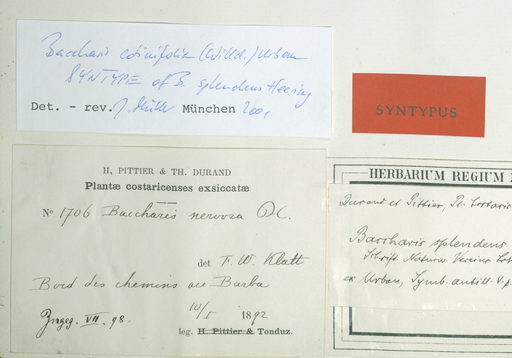 Baccharis cotinifolia (Willd.) Urban
SYNTYPE of B. splendens Heering
Det. - rev. J. Müller München 2001
SYNTYPUS
H. PITTIER & TH. DURAND
Plantæ costaricenses exsiccatæ
No 1706 Baccharis nervosa DC.
det F. W. Klatt
Bord des chemins de Barba
10/I 1892
Zugeg. VII. 98.
leg. H. Pittier & Tonduz.
HERBARIUM REGIUM
Durand et Pittier, Pl. Costaric
Baccharis splendens
Schrift. Naturw. Vereins
ex Urban, Symb. antill. V. p.